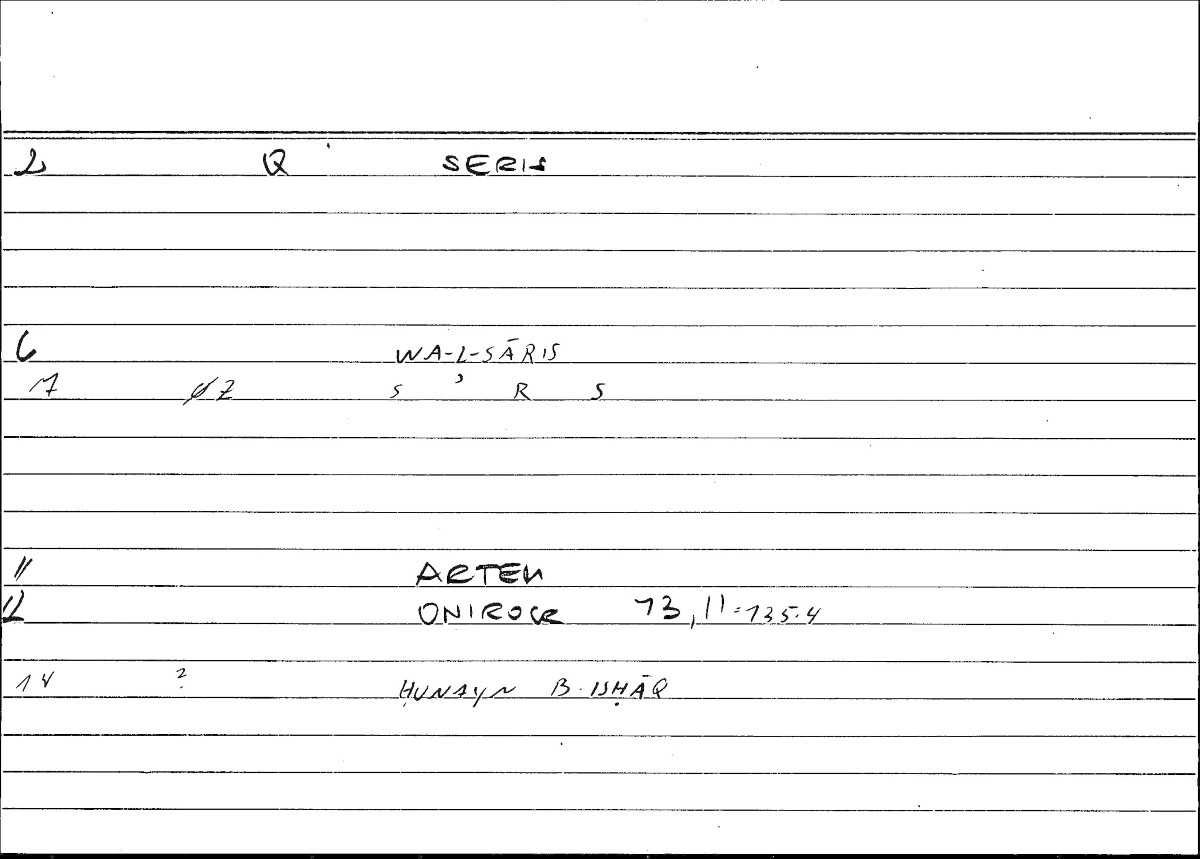 2 Q SERIS
6 WA-L-SĀRIS
17 ØZ S ʾ R S
11 ARTEM
12 ONIROCR 13,11 = 135.4
14 ? ḤUNAYN B. ISḤĀQ